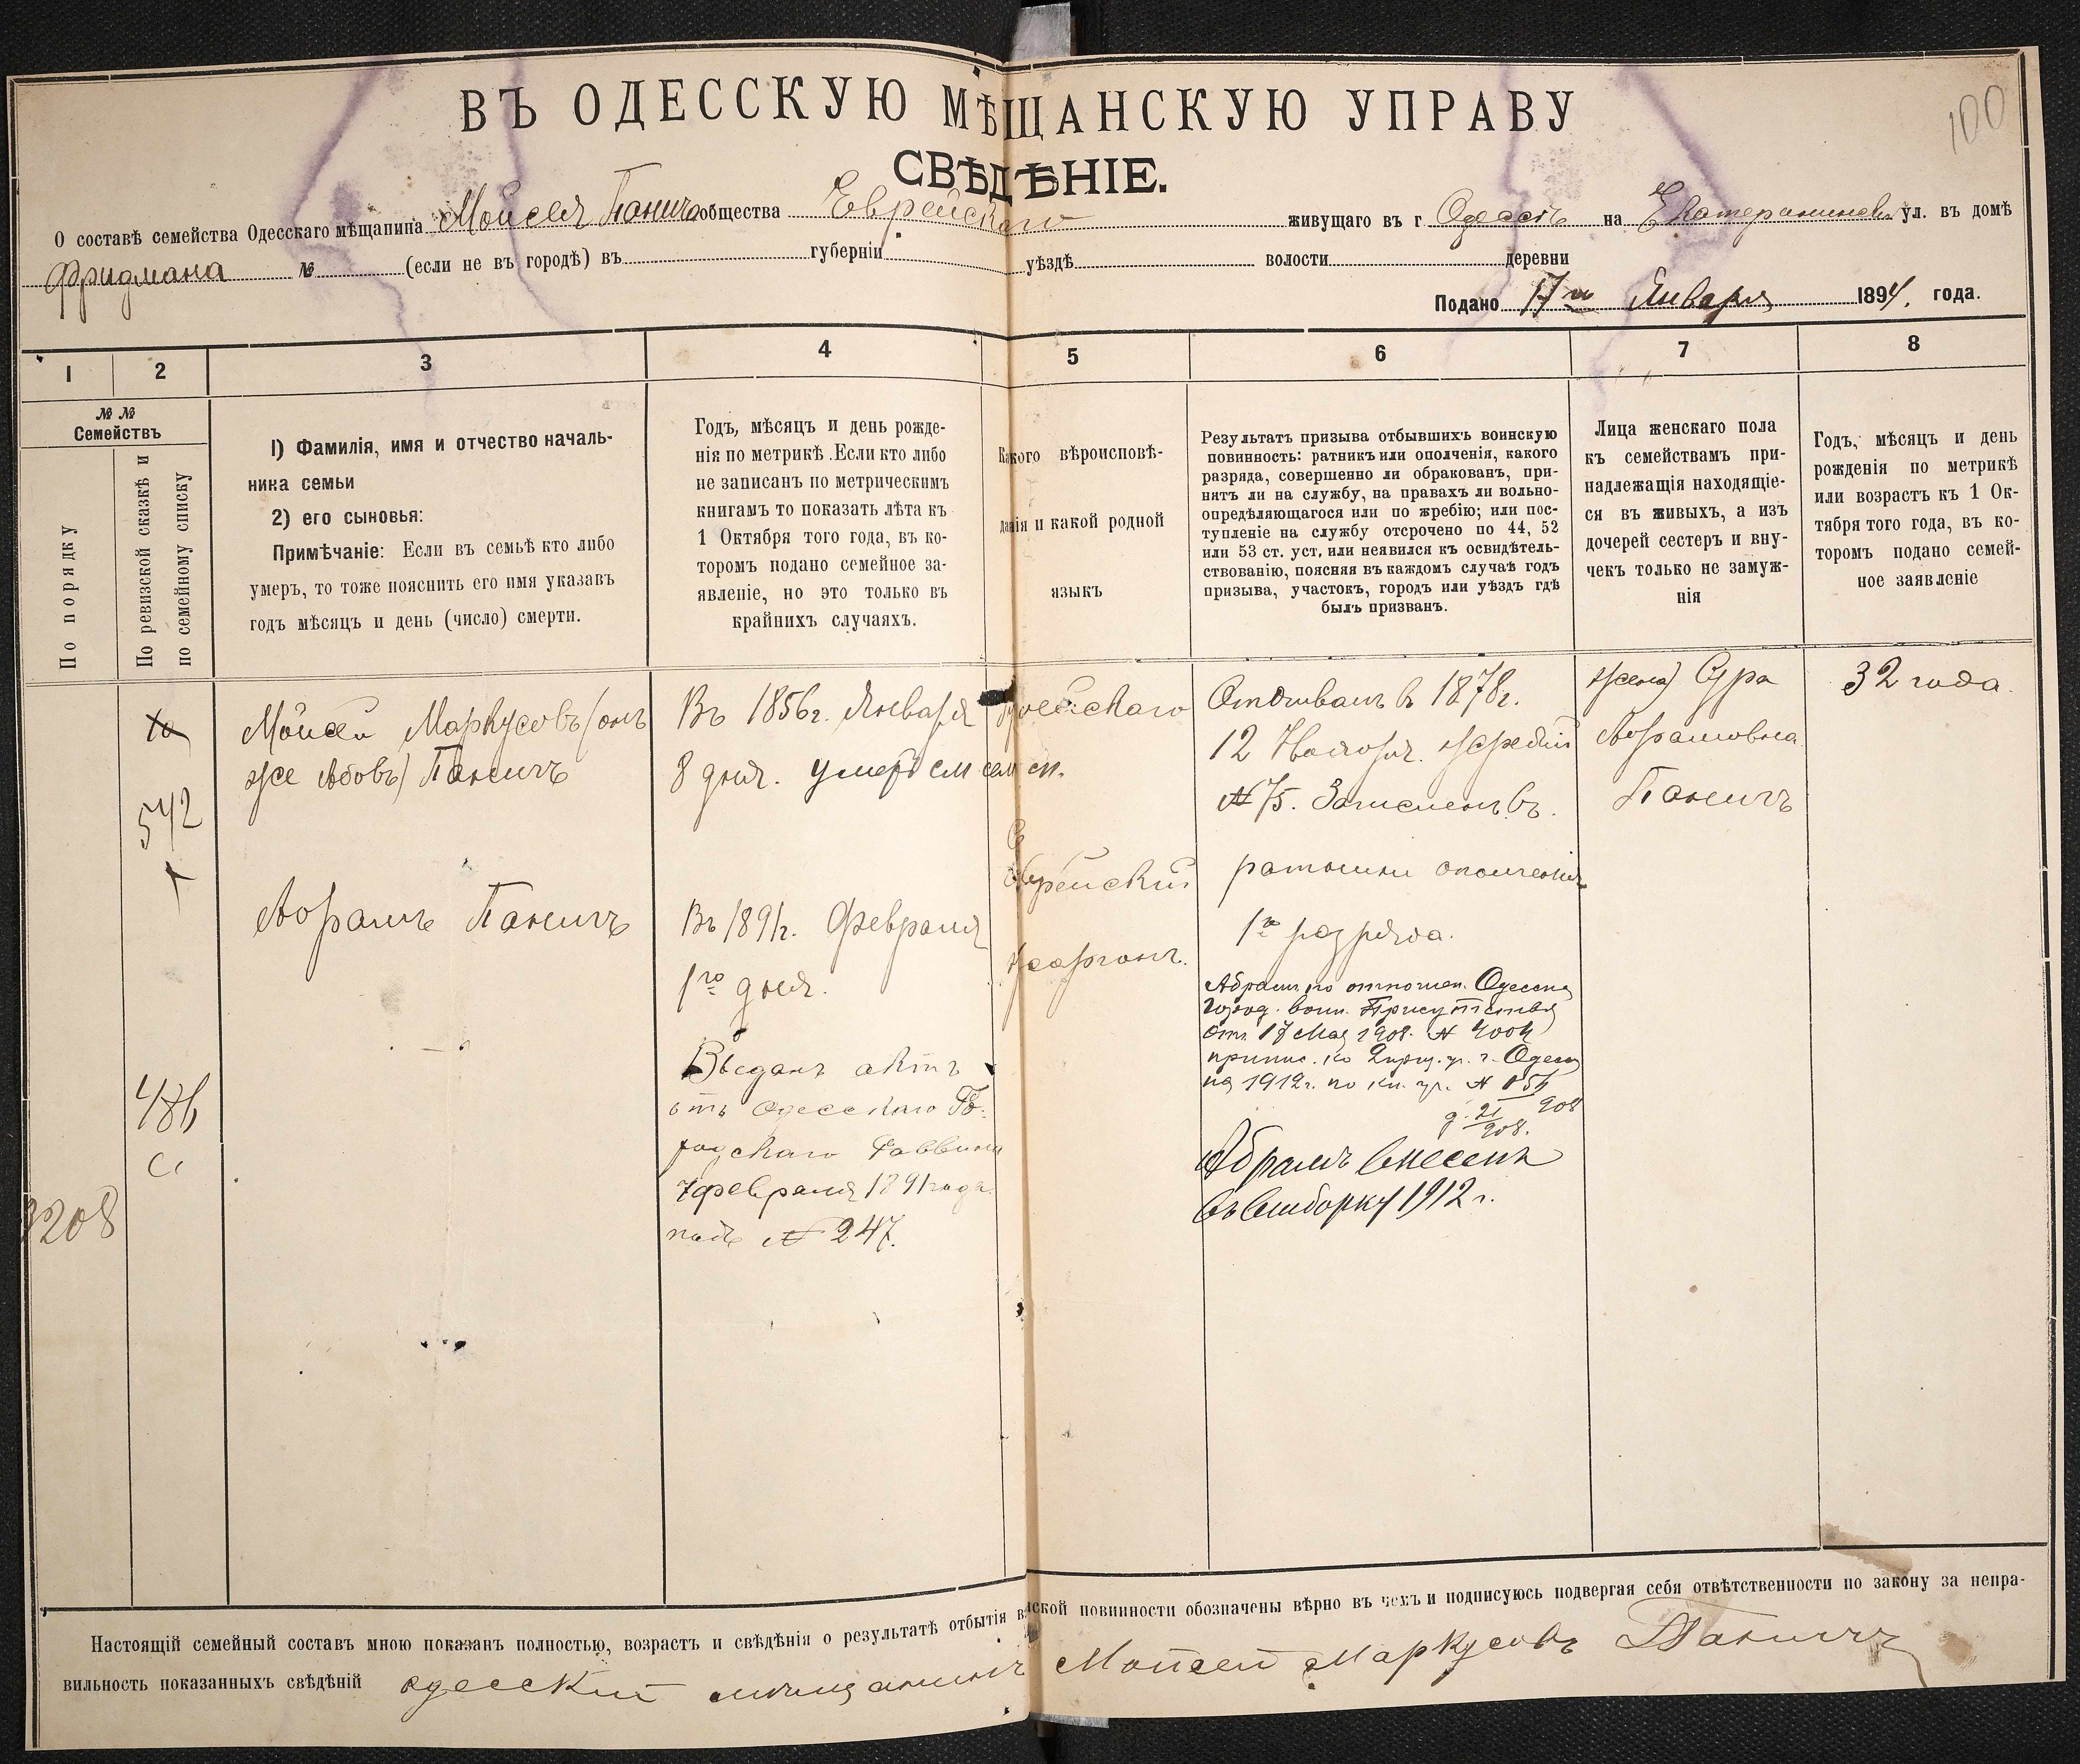 100
ВЪ ОДЕССКУЮ МѢЩАНСКУЮ УПРАВУ
СВѢДѢНІЕ.
О составѣ семейства Одесскаго мѣщанина Мойсея Панича общества Еврейскаго живущаго въ г. Одессѣ на Екатерининск. ул. въ домѣ
Фридмана № (если не въ городѣ) въ губерніи уѣздѣ волости деревни
Подано 17го Января 1894. года.
1 2 3 4 5 6 7 8
№ №
Семействъ
По порядку
По ревизской сказкѣ и
по семейному списку
1) Фамилія, имя и отчество началь-
ника семьи
2) его сыновья:
Примѣчаніе: Если въ семьѣ кто либо
умеръ, то тоже пояснить его имя указавъ
годъ мѣсяцъ и день (число) смерти.
Годъ, мѣсяцъ и день рожде-
нія по метрикѣ. Если кто либо
не записанъ по метрическимъ
книгамъ то показать лѣта къ
1 Октября того года, въ ко-
торомъ подано семейное за-
явленіе, но это только въ
крайнихъ случаяхъ.
Какого вѣроисповѣ-
данія и какой родной
языкъ
Результатъ призыва отбывшихъ воинскую
повинность: ратникъ или ополченія, какого
разряда, совершенно ли обракованъ, при-
нятъ ли на службу, на правахъ ли вольно-
опредѣляющагося или по жребію; или пос-
тупленіе на службу отсрочено по 44, 52
или 53 ст. уст, или неявился къ освидѣтель-
ствованію, поясняя въ каждомъ случаѣ годъ
призыва, участокъ, городъ или уѣздъ гдѣ
былъ призванъ.
Лица женскаго пола
къ семействамъ при-
надлежащія находящіе-
ся въ живыхъ, а изъ
дочерей сестеръ и вну-
чекъ только не замуж-
нія
Годъ, мѣсяцъ и день
рожденія по метрикѣ
или возрастъ къ 1 Ок-
тября того года, въ ко-
торомъ подано семей-
ное заявленіе
542
486
3208
Мойсей Маркусовъ (онъ
же Абовъ) Паничъ
Абрамъ Паничъ
Въ 1856г. Января
8 дня. умеръ
Въ 1891г. Февраля
1го дня.
Выданъ актъ
отъ Одесскаго Го-
родскаго Раввина
7 февраля 1891 года
подъ № 247.
Еврейскій
жаргонъ.
Отбывалъ в 1878г.
12 Ноября. жребій
№ 75. Записанъ въ
ратники ополченія
1го разряда.
Абрамъ по отношен. Одесск
город. воин. Присутствія
отъ 17 Мая 1908.
припис. ко г. Одессы
на 1912г. по
908
21
908.
Абрамъ внесенъ
въ выборку 1912 г.
жена) Сура
Абрамовна
Паничъ
32 года.
Настоящій семейный составъ мною показанъ полностью, возрастъ и свѣдѣнія о результатѣ отбытія воинской повинности обозначены вѣрно въ чемъ и подписуюсь подвергая себя отвѣтственности по закону за непра-
вильность показанныхъ свѣдѣній одесскій мѣщанинъ Мойсей Маркусовъ Паничъ